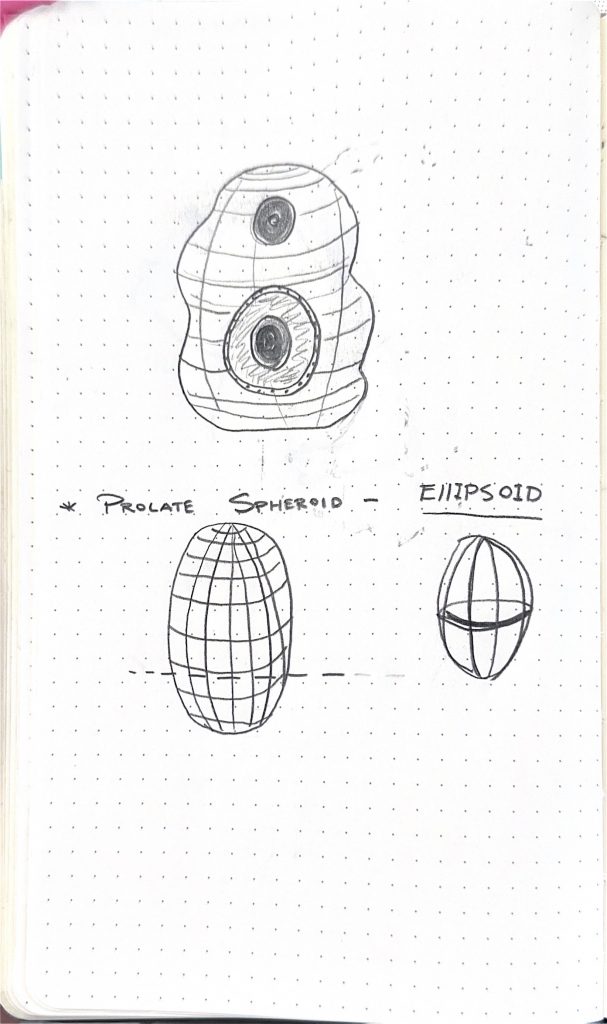 * PROLATE SPHEROID - EllIPSOID